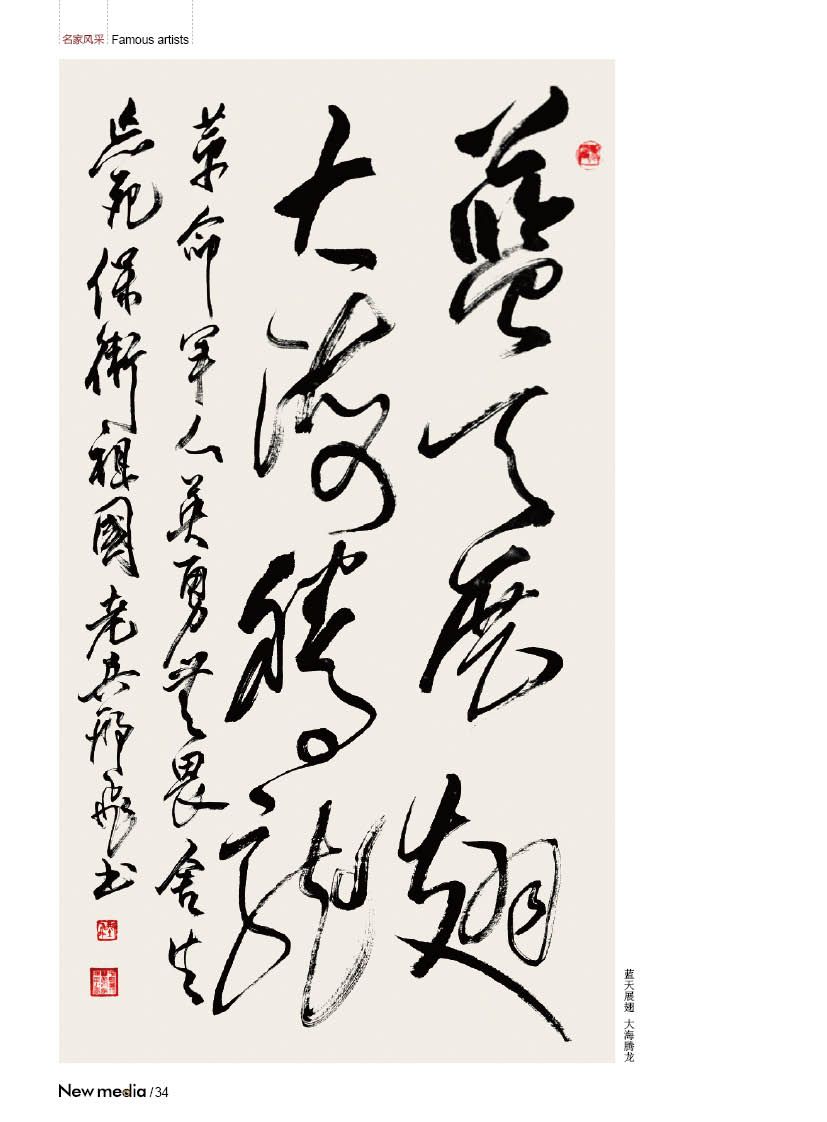 名家风采 Famous artists
藍天展翅
大海腾龍
革命军人英勇無畏舍生
忘死保衛祖國老兵邢飛书
蓝天展翅 大海腾龙
New media /34